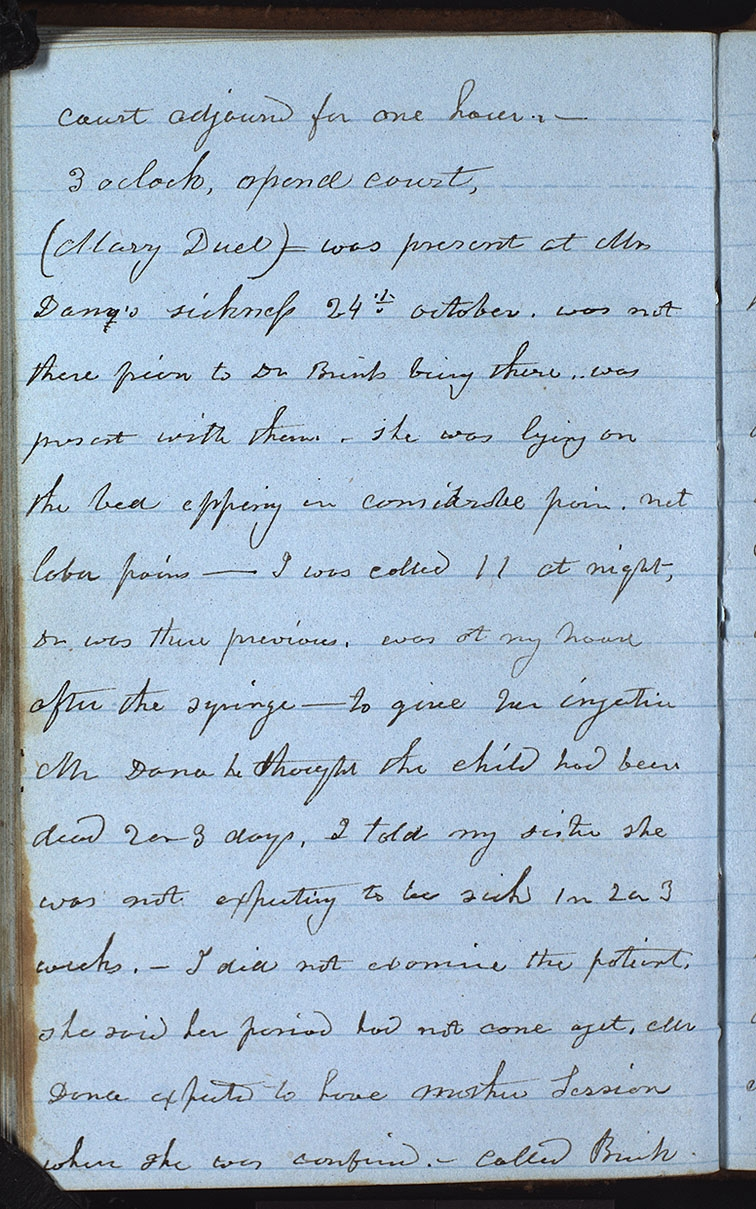 court adjournd for one hour. —
3 oclock, opend court,
(Mary Duel) — was present at Mrs
Dany's sickness 24th october. was not
there prior to Dr Brink being there. was
present with them. - she was lying on
the bed appering in considrable pain. not
labor pains — I was called 11 at night,
Dr. was there previous. was at my house
after the syringe — to give her injection
Mr Dana he thought the child had been
dead 2 or 3 days, I told my sister she
was not expecting to be sick in 2 or 3
weeks. — I did not examine the patient.
she said her period had not come yet. Mr
Dana expected to have mother Session
when she was confind. — called Brink.